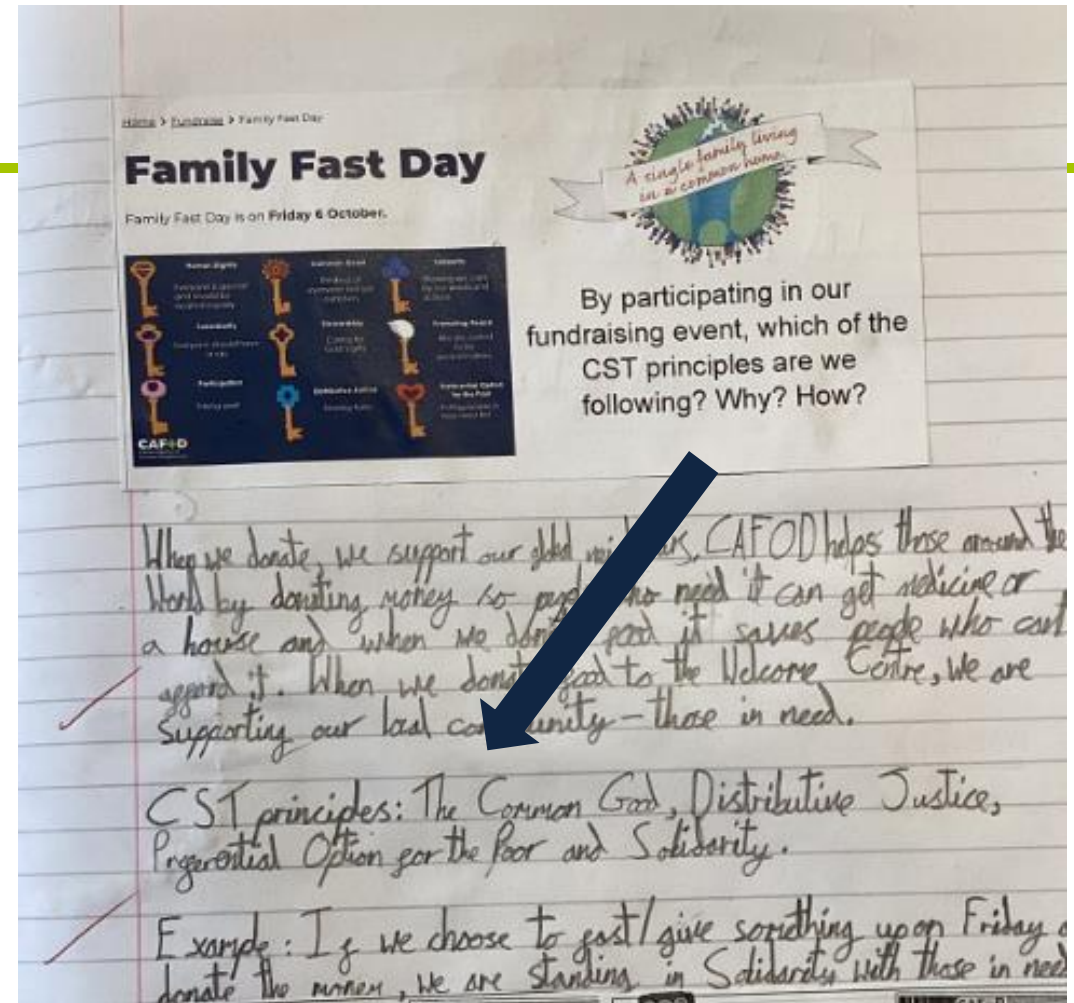 Home > Fundraise > Family Fast Day
Family Fast Day
Family Fast Day is on Friday 6 October.
A single family living
in a common home.
Human Dignity
Common Good
Solidarity
Subsidiarity
Stewardship
Promoting Peace
Participation
Distributive Justice
Preferential Option
for the Poor
CAFOD
By participating in our
fundraising event, which of the
CST principles are we
following? Why? How?
When we donate, we support our global CAFOD helps those around the
World by donating money so who need it can get medicine or
a house and when we food it saves people who cant
afford it. When we donate food to the Welcome Centre, we are
Supporting our local community – those in need.
CST principles: The Common Good, Distributive Justice,
Preferential Option for the Poor and Solidarity.
Example: If we choose to fast/give something up on Friday
donate the money, we are standing in Solidarity with those in need